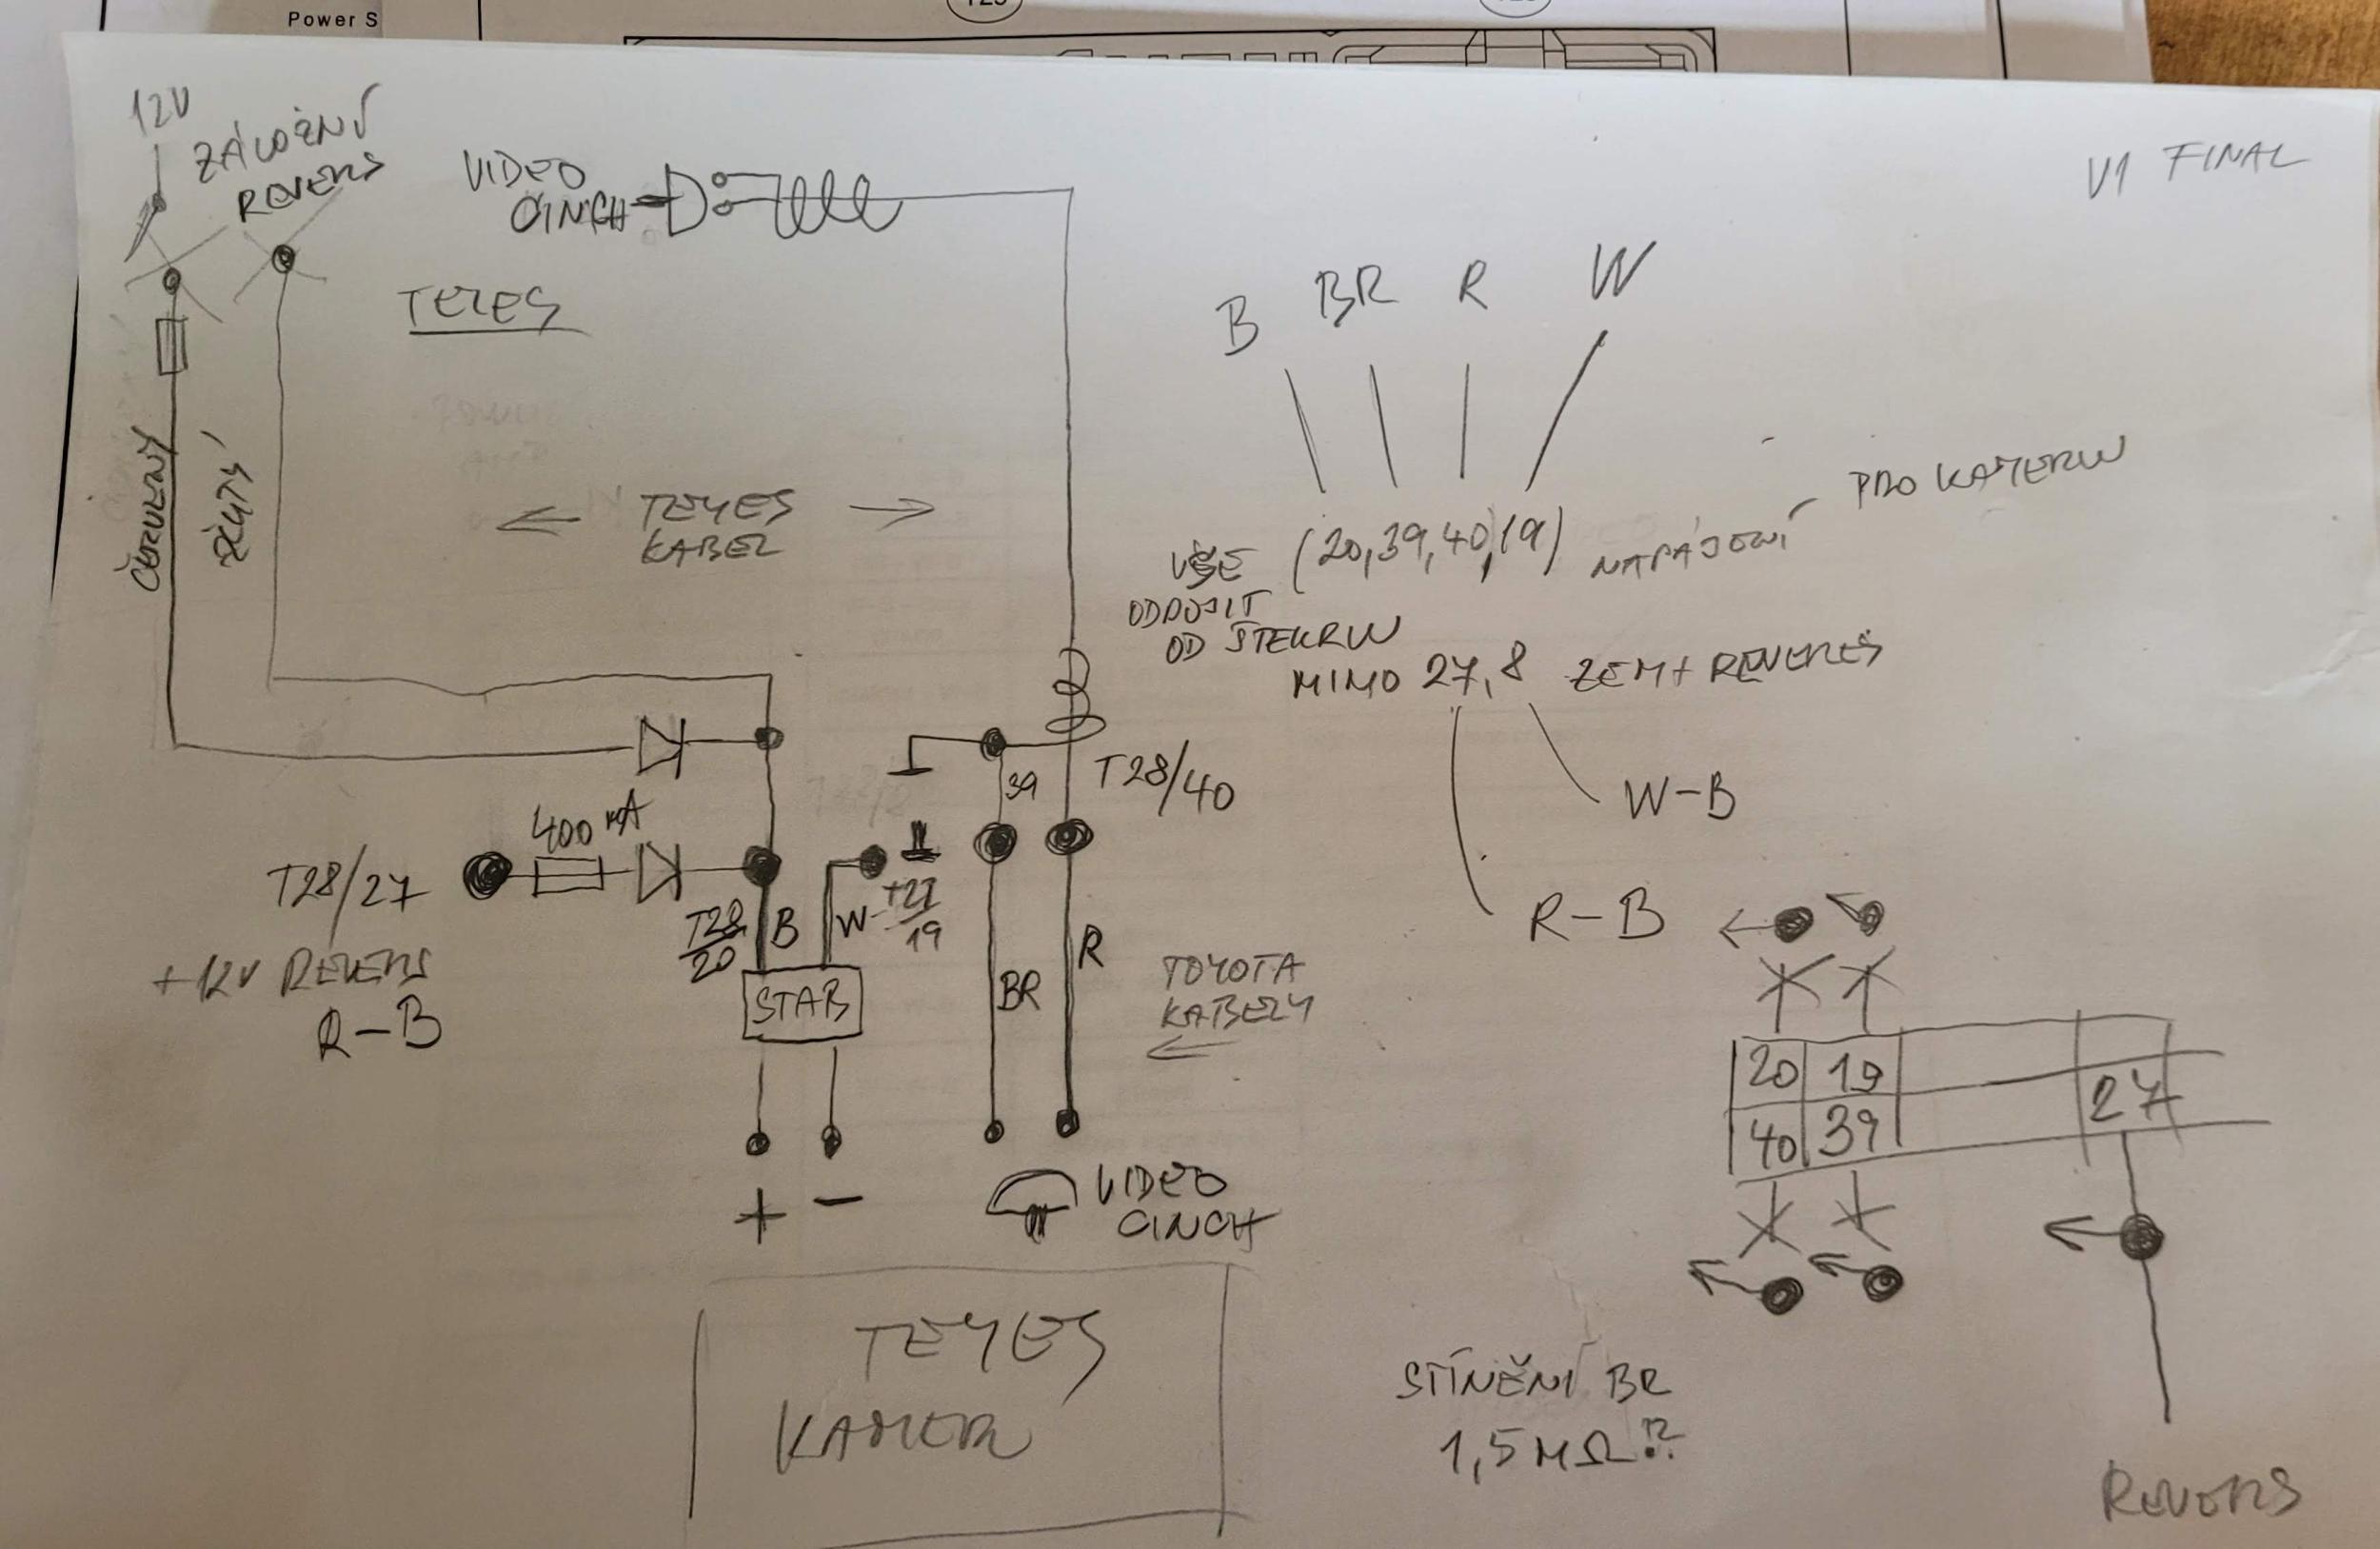 Power S
12V
ZÁLOŽNÍ
REVERS
VIDEO
CINCH
V1 FINAL
TEYES
B BR R W
ČERVENÝ
ŽLUTÝ
← TEYES →
KABEL
VŠE (20,39,40,19) NAPÁJENÍ PRO KAMERU
ODPOJIT
OD ŠTEKRU
MIMO 27,8 ZEM + REVERES
W-B
R-B
39
T28/40
400 mA
T28/27
+12V REVERS
R-B
T28/20
B
W
T27/19
STAB
BR
R
TOYOTA
KABELY
←
20 19
40 39
27
+ −
VIDEO
CINCH
TEYES
KAMER
STÍNĚNÍ BR
1,5 MΩ ??
REVERS